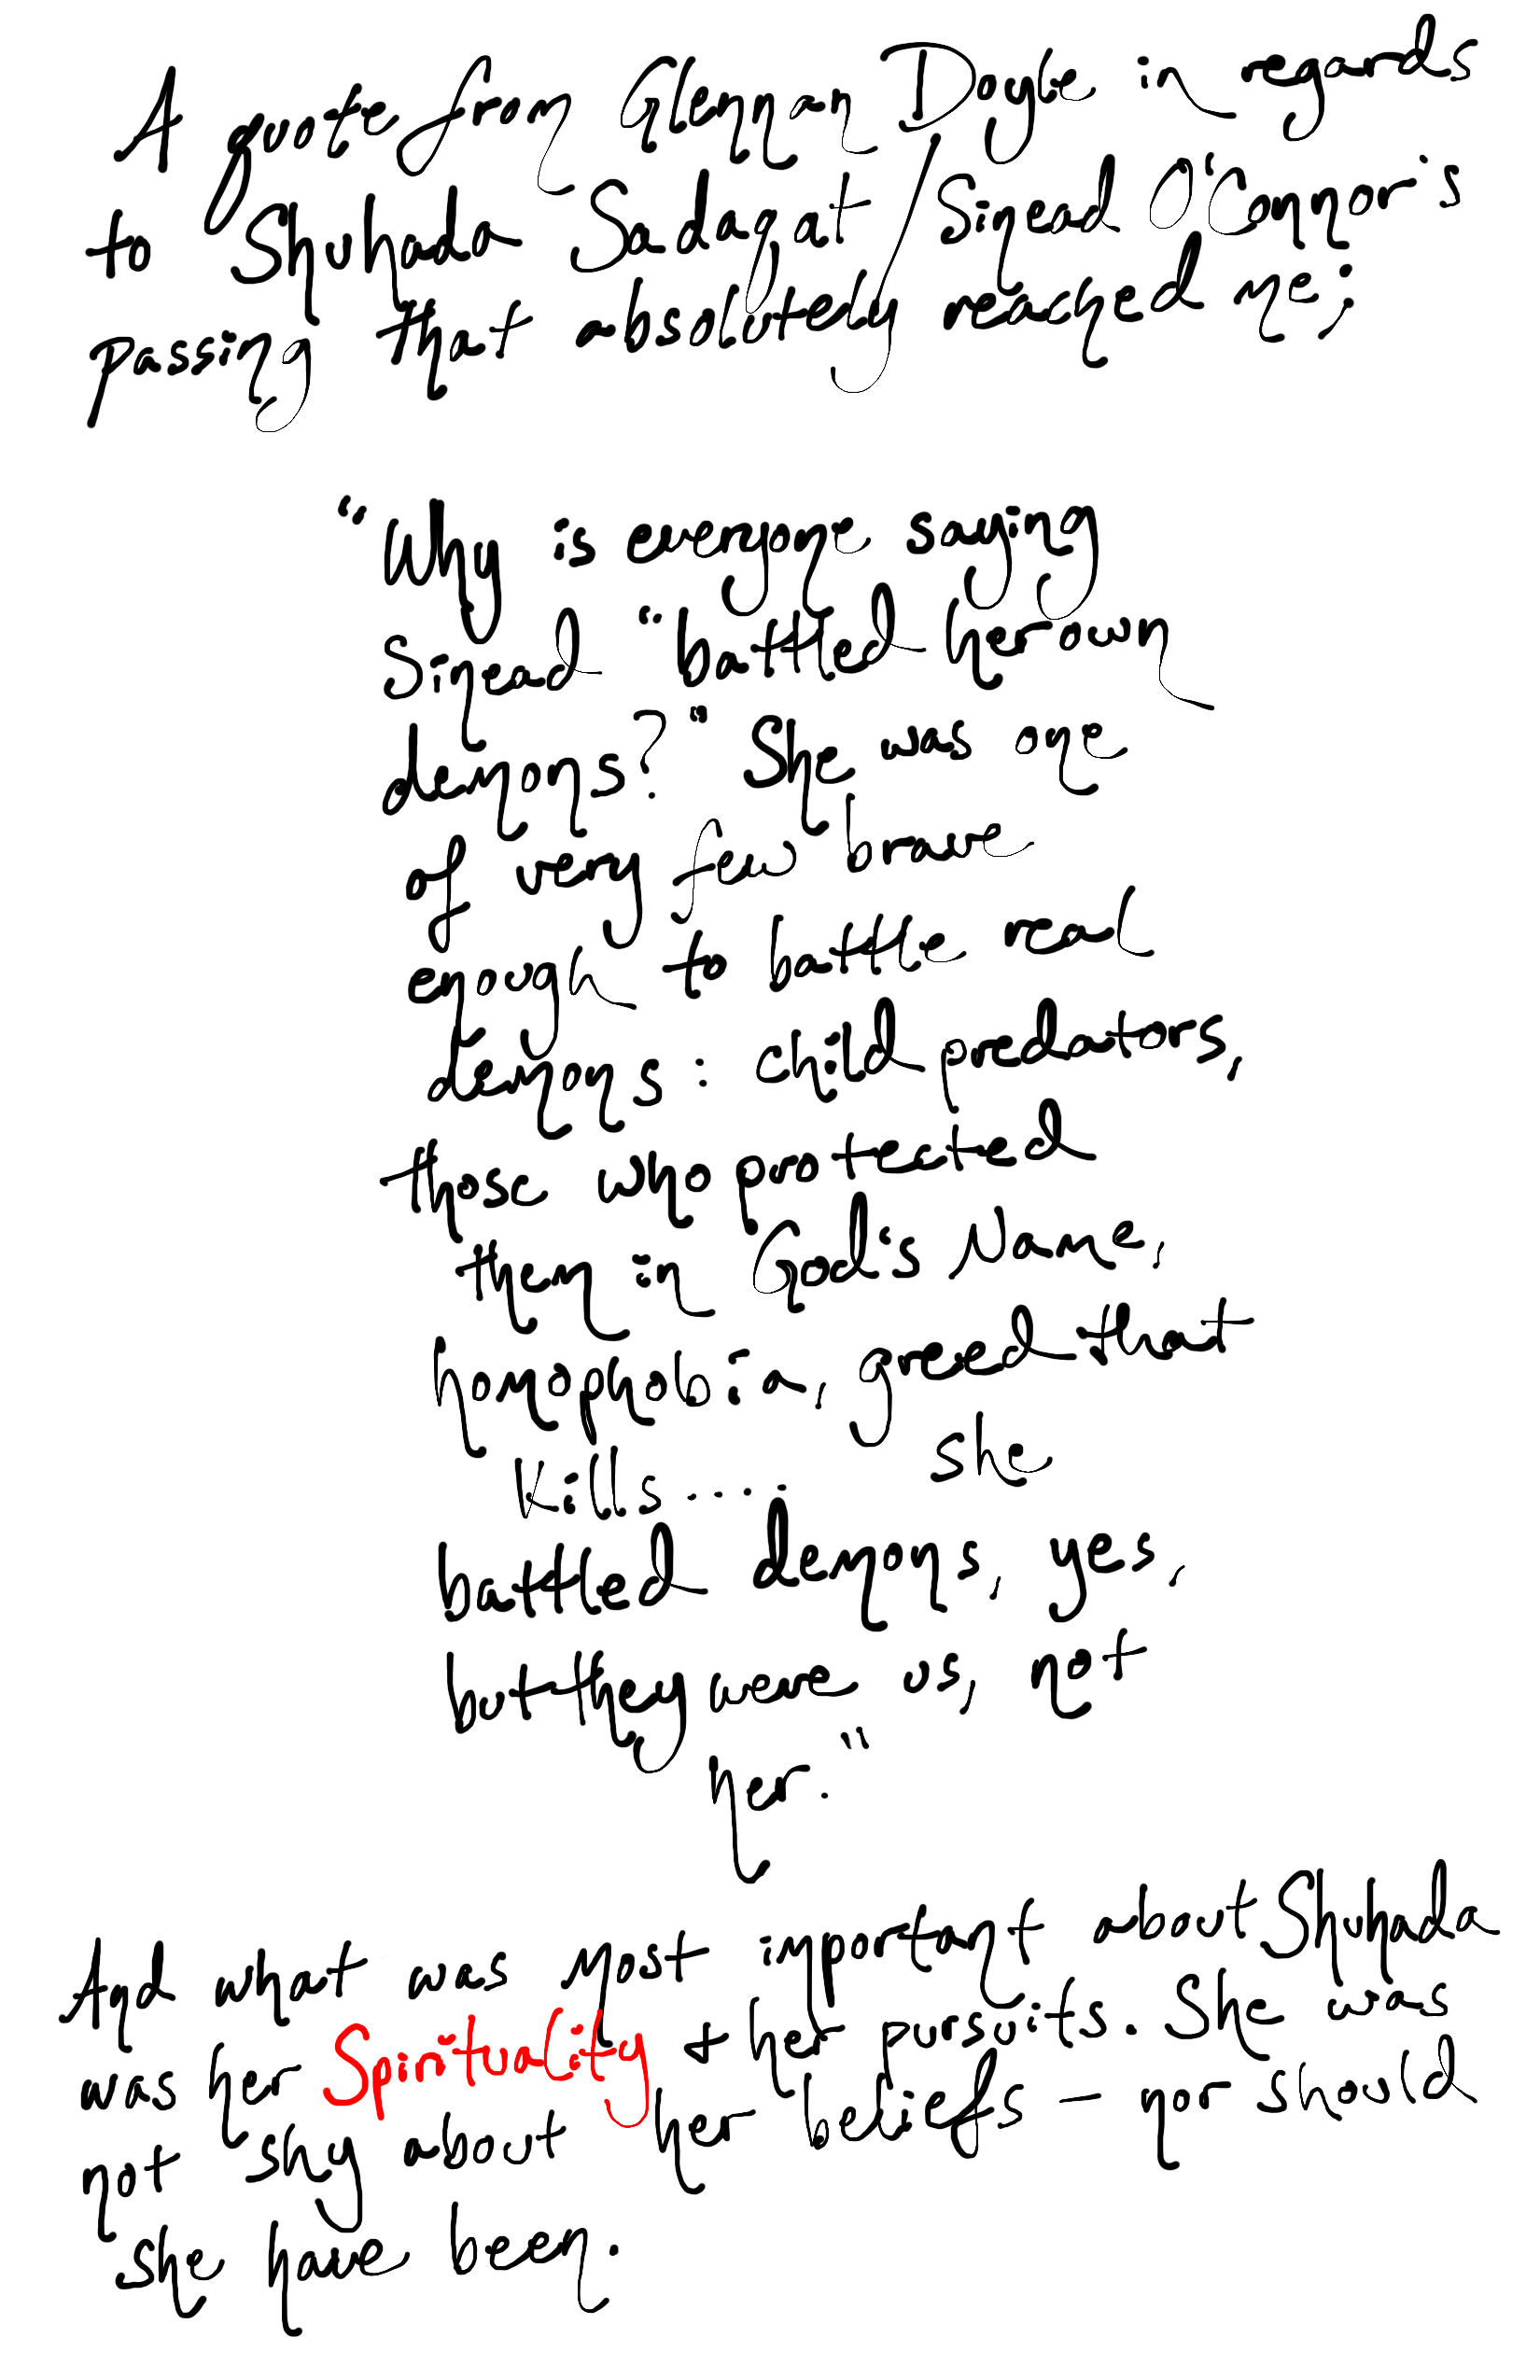 A quote from Glennan Doyle in regards
to Shuhada Sadaqat / Sinead O'Connor's
passing that absolutely reached me;
"Why is everyone saying
Sinead "battled her own
demons?" She was one
of very few brave
enough to battle real
demons: child predators,
those who protected
them in God's Name,
homophobia, greed that
kills.... she
battled demons, yes,
but they were us, not
her."
And what was most important about Shuhada
was her Spirituality + her pursuits. She was
not shy about her beliefs - nor should
she have been.